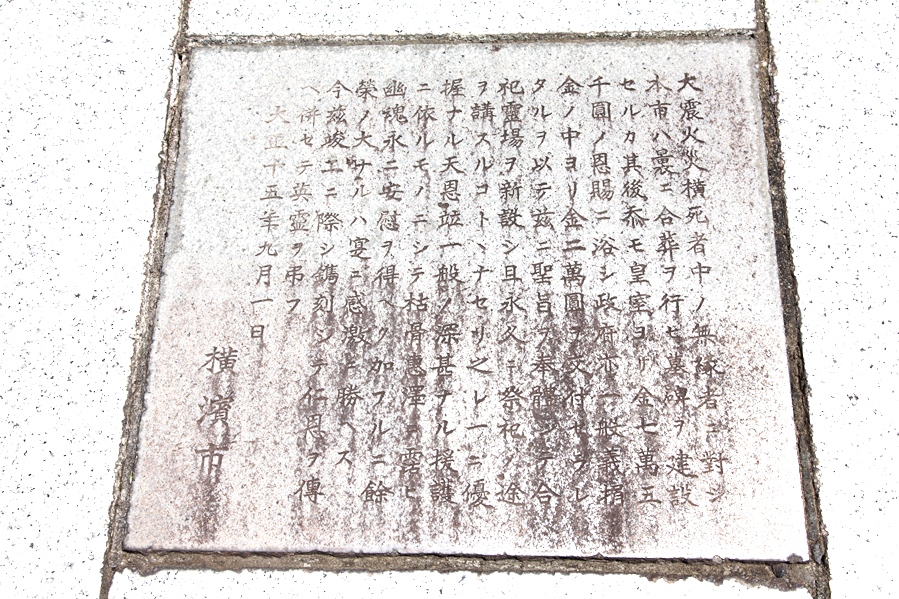 大震火災横死者中ノ無縁者ニ對シ
本市ハ曩ニ合葬ヲ行セ墓碑ヲ建設
セルカ其後忝モ皇室ヨリ金七萬五
千圓ノ恩賜ニ浴シ政府亦一般義捐
金ノ中ヨリ金二萬圓ヲ交付セラレ
タルヲ以テ茲ニ聖旨ヲ奉體シテ合
祀靈場ヲ新設シ且永久ニ祭祀ノ途
ヲ講スルコトヽナセリ之レ一ニ優
握ナル天恩竝一般ノ深甚ナル援護
ニ依ルモノニシテ枯骨恵澤ニ霑ヒ
幽魂永ニ安慰ヲ得ヘク加フルニ餘
榮ノ大ナルハ寔ニ感激ニ勝ヘス
今茲竣工ニ際シ鐫刻シテ仁恩ヲ傳
ヘ併セテ英靈ヲ弔フ
大正十五年九月一日
横濱市